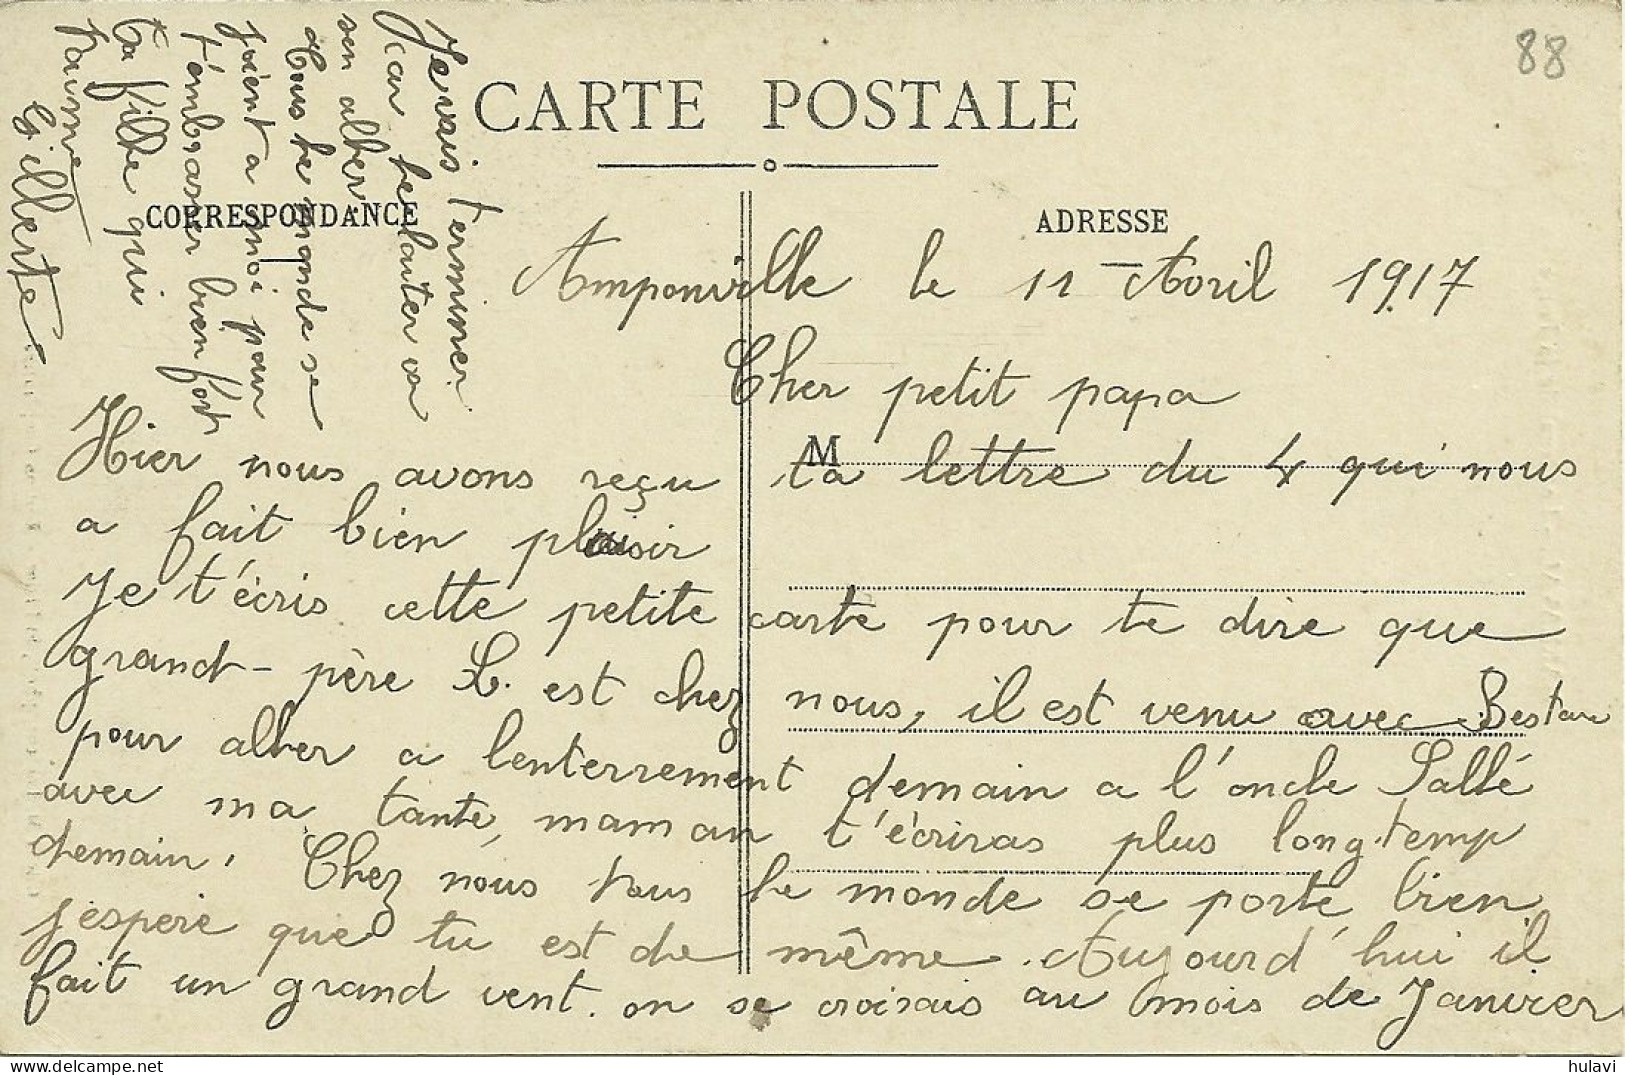 88
CARTE POSTALE
CORRESPONDANCE
ADRESSE
M
Amponville le 11 Avril 1917
Cher petit papa
Hier nous avons reçu ta lettre du 4 qui nous
a fait bien plaisir
Je t'écris cette petite carte pour te dire que
grand-père L. est chez nous, il est venu avec
pour aller a lenterrement demain a l'oncle Sallé
avec ma tante, maman t'écriras plus longtemp
demain. Chez nous tous le monde se porte bien
j'espère que tu est de même. Aujourd'hui il
fait un grand vent. on se croirais au mois de Janvier
Je vais terminer
car le laitier va
sen aller
tous le monde se
joient a moi pour
t'embrasser bien fort
Ta fille qui
t'aime
Gillerte
hulavi